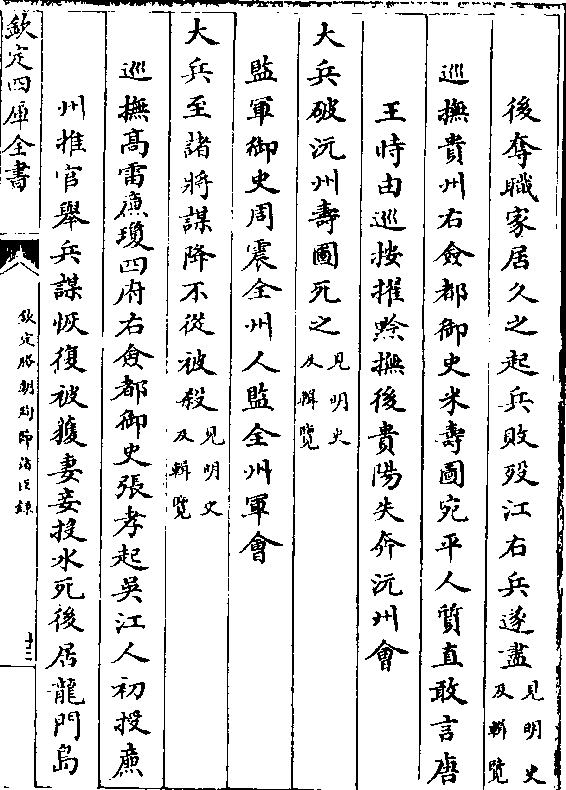 後奪職家居久之起兵敗殁江右兵遂盡見明史及輯覽
巡撫貴州右僉都御史米壽圖宛平人質直敢言唐
王時由巡按擢黔撫後貴陽失奔沅州會
大兵破沅州壽圖死之見明史及輯覽
監軍御史周震全州人監全州軍會
大兵至諸將謀降不從被殺見明史及輯覽
巡撫高雷廉瓊四府右僉都御史張孝起吳江人初授廉
州推官舉兵謀恢復被獲妻妾投水死後居龍門島
欽定四庫全書
欽定勝朝殉節諸臣錄
十三